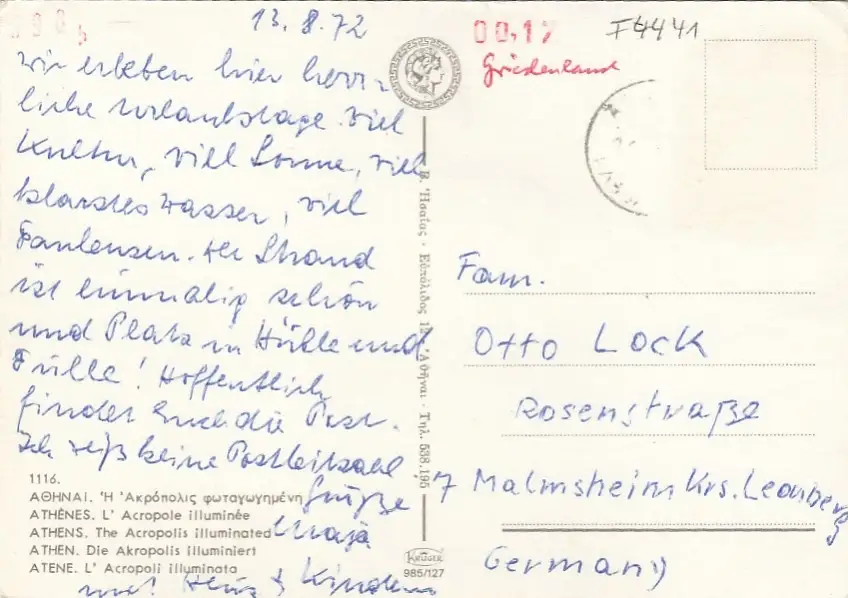 13.8.72
Wir erleben hier herr-
liche Urlaubstage. Viel
Kultur, viel Sonne, viel
klarstes Wasser, viel
Faulenzen. Der Strand
ist einmalig schön
und Platz in Hülle und
Fülle! Hoffentlich
findet Euch die Post.
Ich weiß keine Postleitzahl
Grüße
und Heinz + Kindern
1116.
ΑΘΗΝΑΙ. Ἡ Ἀκρόπολις φωταγωγημένη
ATHÈNES. L' Acropole illuminée
ATHENS. The Acropolis illuminated
ATHEN. Die Akropolis illuminiert
ATENE. L' Acropoli illuminata
Β. Ἡσαΐας · Εὐπόλιδος 12 Ἀθῆναι · Τηλ. 538.195
KRÜGER
985/127
00,17
I4441
Griechenland
Fam.
Otto Lock
Rosenstraße
7 Malmsheim Krs. Leonberg
Germany